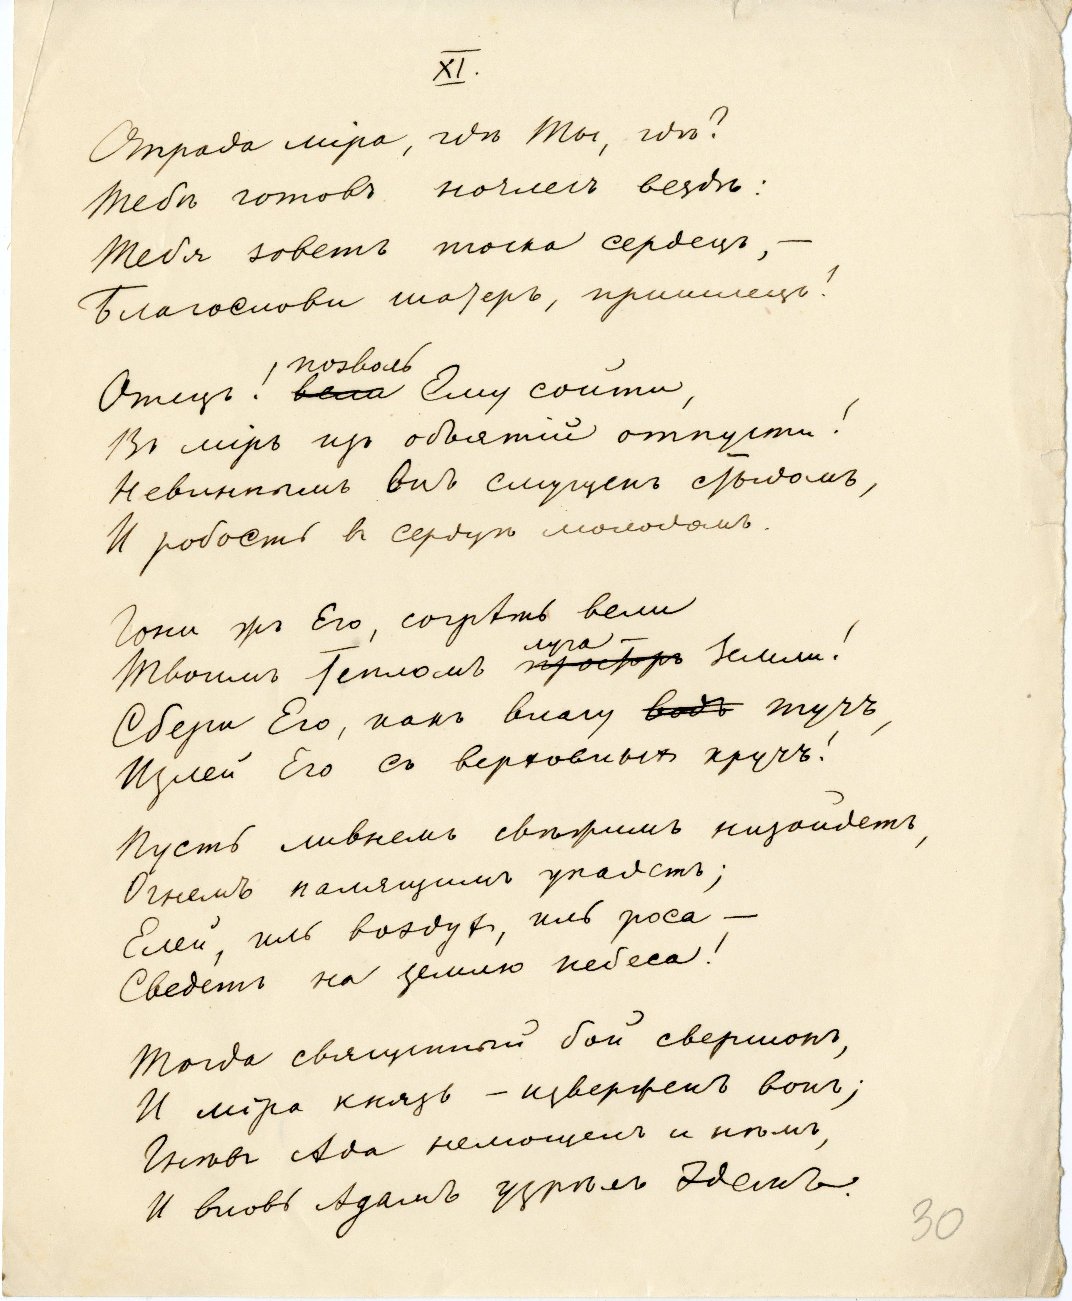 XI.
Отрада міра, гдѣ Ты, гдѣ?
Тебѣ готовъ ночлегъ вездѣ:
Тебя зоветъ тоска сердецъ, –
Благослови шатеръ, пришлецъ!
позволь
Отецъ! вели Ему сойти,
Въ міръ изъ объятій отпусти!
Невиннымъ Онъ смущенъ стыдомъ,
И робость въ сердцѣ молодомъ.
Гони жъ Его, согрѣть вели
луга
Твоимъ тепломъ просторъ Земли!
Сбери Его, какъ влагу водъ тучъ,
Излей Его съ верховныхъ кручъ!
Пусть ливнемъ свѣжимъ низойдетъ,
Огнемъ палящимъ упадетъ;
Елей, иль воздух, иль роса –
Сведетъ на землю небеса!
Тогда священный бой свершонъ,
И міра князь – изверженъ вонъ;
Гнѣвъ Ада немощенъ и нѣмъ,
И вновь Адамъ узрѣлъ Эдемъ.
30